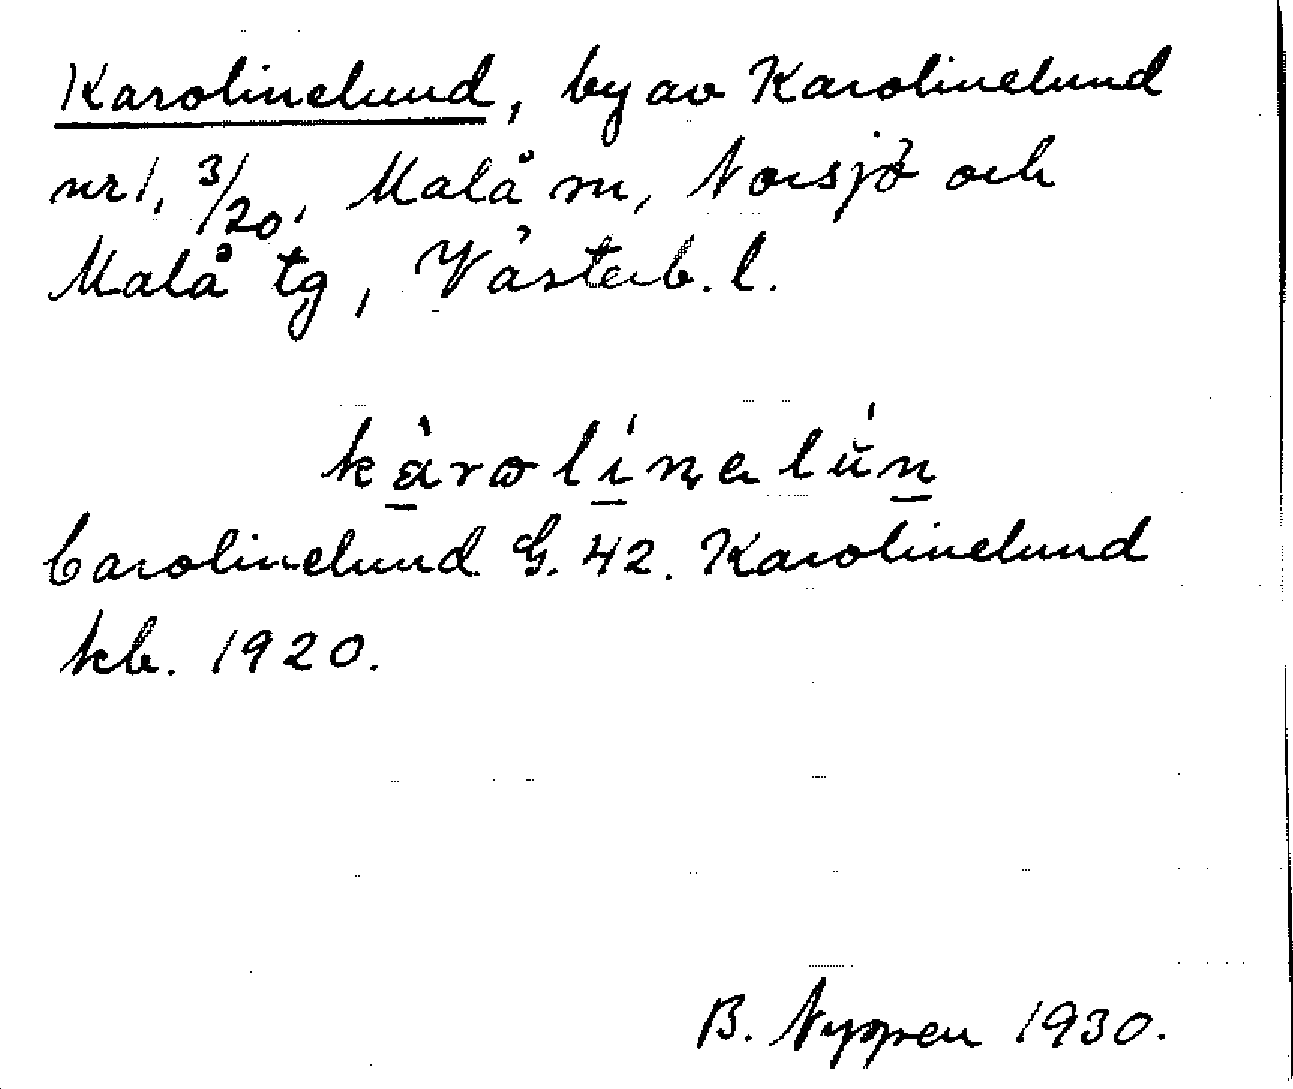 Karolinelund, by av Karolinelund
nr 1, 3/20, Malå sn, Norsjö och
Malå tg, Västerb. l.
kàrolínalún
Carolinelund G. 42. Karolinelund
kb. 1920.
B. Nyppen 1930.